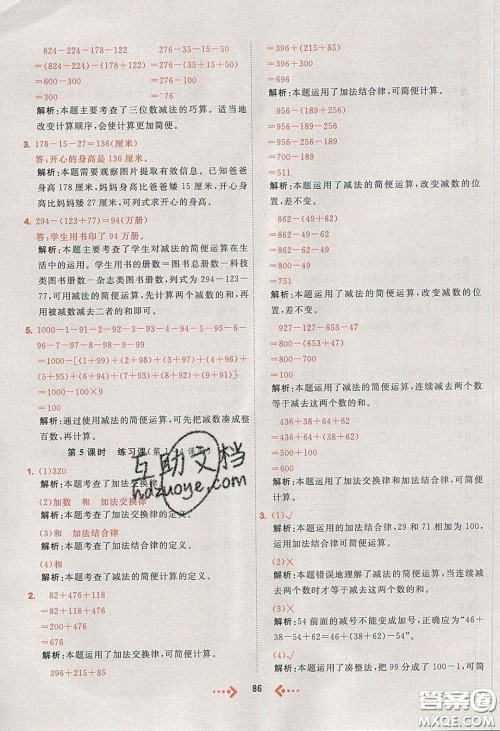 824-224-178-122
276-15-50-135
=(824-224)-(178+122)
=600-300
=300
=76
解析:本题主要考查了三位数减法的巧算。适当地
改变计算顺序,会使计算更加简便。
3. 178-15-27=136(厘米)
答:开心的身高是 136 厘米。
解析:本题需要观察图片提取有效信息。已知爸爸
身高 178 厘米,妈妈身高比爸爸矮 15 厘米,开心身
高比妈妈矮 27 厘米,可列式求开心身高。
4. 294-(123+77)=94(万册)
答:学生用书印了 94 万册。
解析:本题主要考查了学生对减法的简便运算在生活
中的运用。学生用书的册数=图书总册数-科技
类图书册数-杂志类图书册数,列式为 294-123-
77,可用减法的简便运算,先计算两个减数的和,再
用被减数减去二者的和即可。
5. 1000-1-91-2-92-3-93-4-94-5-95-6-
96-7-97-8-98-9-99
=1000-[(1+99)+(2+98)+(3+97)+(4+96)
+(5+95)+(6+94)+(7+93)+(8+92)+(9+91)]
=1000-900
=100
解析:通过使用减法的简便运算,可先把减数凑成整
百数,再计算。
第 5 课时 练习课
1. (1)320
解析:本题考查了加法交换律。
(2)加数 和 加法交换律
解析:本题考查了加法交换律的定义。
(3)和 加法结合律
解析:本题考查了加法结合律的定义。
(4)和
解析:本题考查了减法的简便计算的定义。
2. 82+476+118
=82+118+476
=200+476
=676
解析:本题运用了加法交换律,可简便计算。
396+215+85
=396+(215+85)
=396+300
=696
解析:本题运用了加法结合律,可简便计算。
956-(189+256)
=956-256-189
=700-189
=511
解析:本题运用了减法的简便运算,改变减数的位
置,差不变。
862-(49+62)
=862-62-49
=800-49
=751
解析:本题运用了减法的简便运算,改变减数的位
置,差不变。
800-653-47
=800-(653+47)
=800-700
=100
解析:本题运用了减法的简便运算,连续减去两个数
等于减去这两个数的和。
436+38+64+62
=(436+64)+(38+62)
=500+100
=600
解析:本题运用了减法的简便运算,连续减去两个数
等于减去这两个数的和。
3. (1)√
解析:本题运用了加法结合律,29 和 71 相加为 100,
运用加法结合律可简便计算。
(2)×
解析:本题错误地理解了减法的简便运算,连续减去
两个数等于减去这两个数的和。
(3)×
解析:54 前面的减号不能变成加号,正确为“46+
38-54+62=46+(38+62)-54”
(4)√
解析:本题运用了凑整法,把 99 分成了 100-1,可简
86
互助文档
hdzuoye.com
答案圈
MXQE.COM